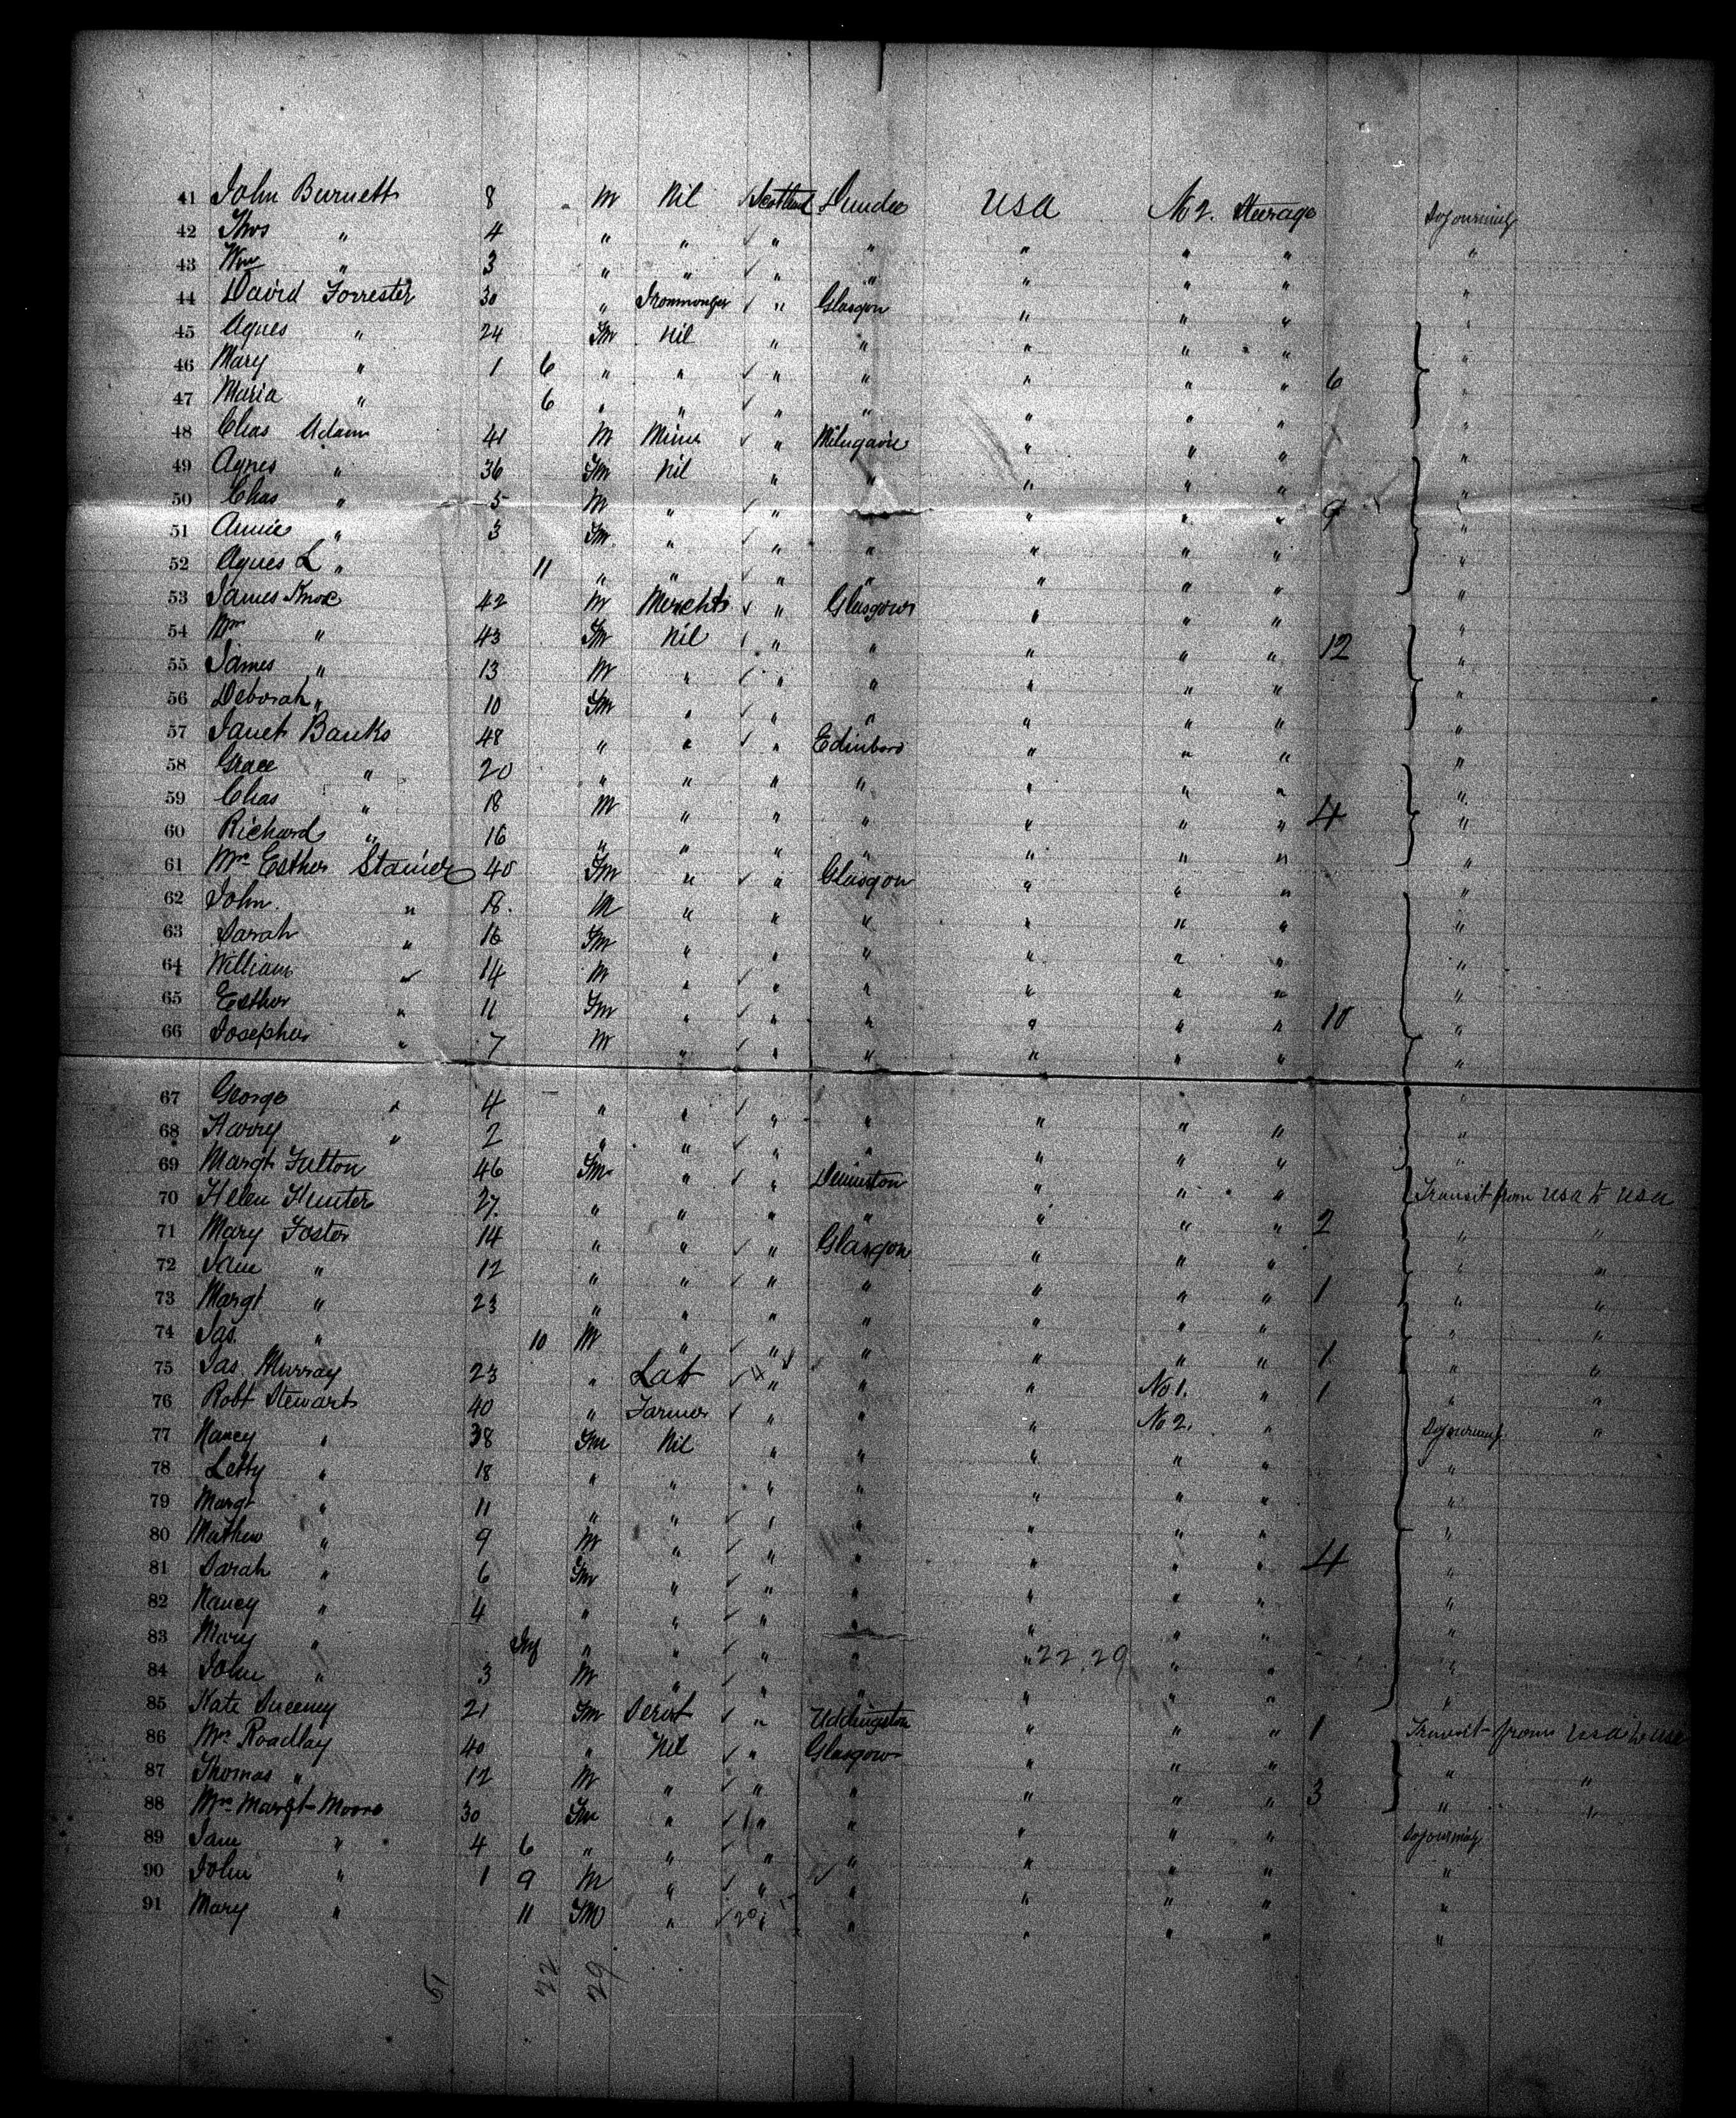 41 John Burnett 8 M Nil Scotland Dundee USA No 2. Steerage Sojourning
42 Thos " 4 " " " " " " " "
43 Wm " 3 " " " " " " " "
44 David Forrester 30 " Ironmonger " Glasgow " " " "
45 Agnes " 24 Fm Nil " " " " " "
46 Mary " 1 6 " " " " " " " 6 "
47 Maria " 6 " " " " " " " "
48 Chas Adam 41 M Miner " Milngavie " " " "
49 Agnes " 36 Fm Nil " " " " " "
50 Chas " 5 M " " " " " " 9 "
51 Annie " 3 Fm " " " " " " "
52 Agnes L " 11 " " " " " " " "
53 James Knox 42 M Mercht " Glasgow " " " "
54 Mrs " 43 Fm Nil " " " " " 12 "
55 James " 13 M " " " " " " "
56 Deborah " 10 Fm " " " " " " "
57 Janet Banks 48 " " " Edinboro " " " "
58 Grace " 20 " " " " " " " "
59 Chas " 18 M " " " " " " 4 "
60 Richard " 16 " " " " " " " "
61 Mrs Esther 40 Fm " " Glasgow " " " "
62 John " 18 M " " " " " " "
63 Sarah " 16 Fm " " " " " " "
64 William " 14 M " " " " " " "
65 Esther " 11 Fm " " " " " " 10 "
66 Josephus " 7 M " " " " " " "
67 George " 4 " " " " " " " "
68 Harry " 2 " " " " " " " "
69 Margt Fulton 46 Fm " " " " " Transit from USA to USA
70 Helen Hunter 27 " " " " " " " 2 " "
71 Mary Foster 14 " " " Glasgow " " " " "
72 Jane " 12 " " " " " " " 1 " "
73 Margt " 23 " " " " " " " " "
74 Jas " 10 M " " " " " " 1 " "
75 Jas Murray 23 " Lab " " " No 1. " 1 " "
76 Robt Stewart 40 " Farmer " " " No 2. " Sojourning "
77 Nancy " 38 Fm Nil " " " " " "
78 Letty " 18 " " " " " " " "
79 Margt " 11 " " " " " " " "
80 Mathew " 9 M " " " " " " 4 "
81 Sarah " 6 Fm " " " " " " "
82 Nancy " 4 " " " " " " " "
83 Mary " Inf " " " " " 22.29 " " "
84 John " 3 M " " " " " " "
85 Kate Sweeney 21 Fm Servt " Uddingston " " " 1 Transit from USA to USA
86 Mrs Roadlay 40 " Nil " Glasgow " " " " "
87 Thomas " 12 M " " " " " " 3 " "
88 Mrs Margt Moore 30 Fm " " " " " " Sojourning
89 Jane " 4 6 " " " " " " " "
90 John " 1 9 M " " " " " " "
91 Mary " 11 Fm " " " " " " "
51 22 29